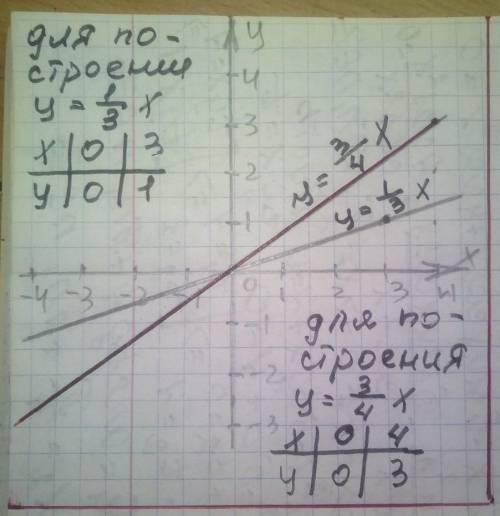 для по-
строении
y = 1/3 x
x | 0 | 3
y | 0 | 1
y
4
3
2
1
y = 3/4 x
y = 1/3 x
x
-4 -3 -2 -1 0 1 2 3 4
-1
-2
-3
для по-
строения
y = 3/4 x
x | 0 | 4
y | 0 | 3